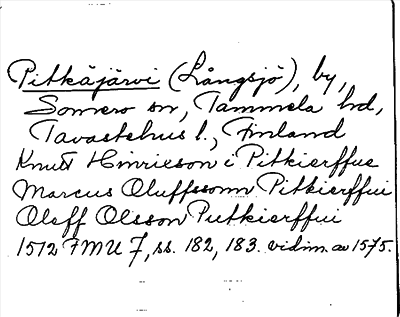 Pitkäjärvi (Långsjö), by,
Somero sn, Tammela hd,
Tavastehus l., Finland
Knutt Hinricson i Pitkierffue
Marcus Oluffssonn Pitkierffui
Oleff Olsson Putkierffui
1512 FMU 7, ss. 182, 183. vidim. av 1575.